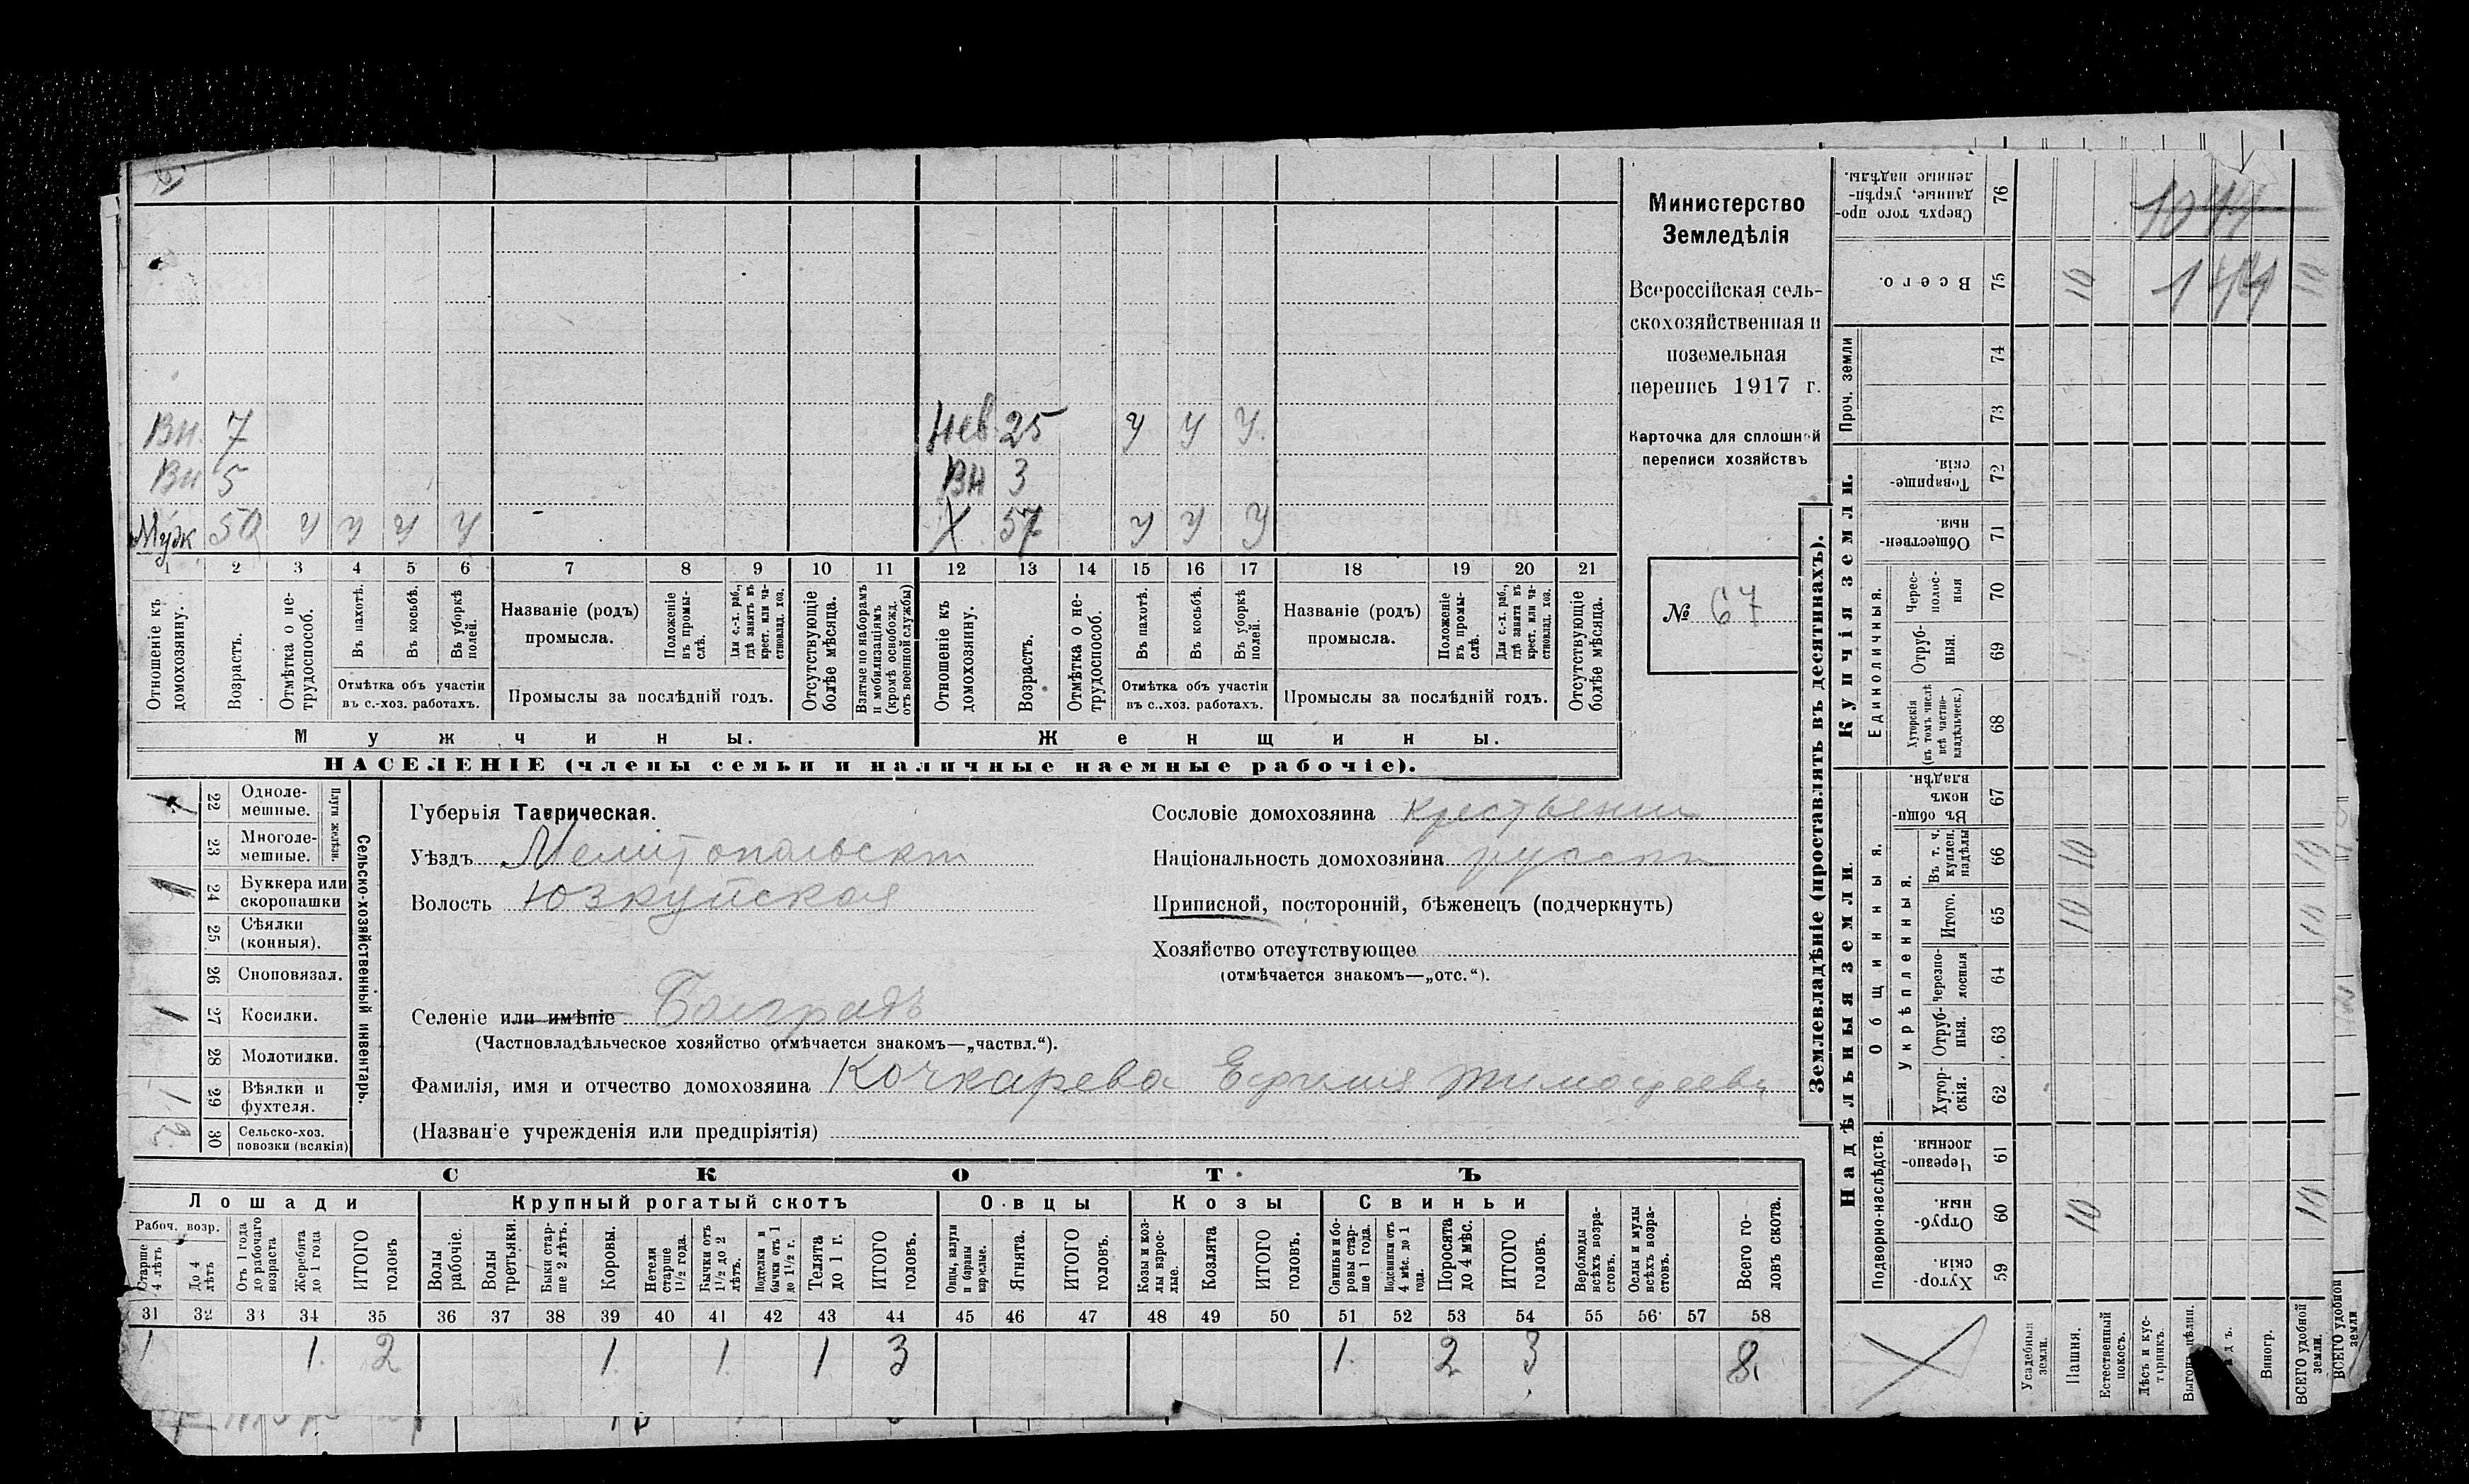 Министерство
Земледѣлія
Всероссійская сель-
скохозяйственная и
поземельная
перепись 1917 г.
Карточка для сплошной
переписи хозяйствъ
№ 67
Вн. 7
Нев 25 У У У.
Вн 5
Вн 3
Муж 50 У У У У
Х 57 У У У
1 2 3 4 5 6 7 8 9 10 11 12 13 14 15 16 17 18 19 20 21
Отношеніе къ домохозяину.
Возрастъ.
Отмѣтка о не-трудоспособ.
Въ пахотѣ.
Въ косьбѣ.
Въ уборкѣ полей.
Отмѣтка объ участіи въ с.-хоз. работахъ.
Названіе (родъ) промысла.
Положеніе въ промы-слѣ.
Для с.-х. раб., гдѣ занятъ въ крест. или ча-стновлад. хоз.
Промыслы за послѣдній годъ.
Отсутствующіе болѣе мѣсяца.
Взятые по наборамъ и мобилизаціямъ (кромѣ освобожд. отъ военной службы)
Отношеніе къ домохозяину.
Возрастъ.
Отмѣтка о не-трудоспособ.
Въ пахотѣ.
Въ косьбѣ.
Въ уборкѣ полей.
Отмѣтка объ участіи въ с..хоз. работахъ.
Названіе (родъ) промысла.
Положеніе въ промы-слѣ.
Для с.-х. раб., гдѣ занята въ крест. или ча-стновлад. хоз.
Промыслы за послѣдній годъ.
Отсутствующіе болѣе мѣсяца.
Мужчины.
Женщины.
НАСЕЛЕНІЕ (члены семьи и наличные наемные рабочіе).
Сельско-хозяйственный инвентарь.
Плуги желѣзн.
22 Одноле-мешные.
23 Многоле-мешные.
24 Буккера или скоропашки
25 Сѣялки (конныя).
26 Сноповязал.
1 27 Косилки.
28 Молотилки.
1 29 Вѣялки и фухтеля.
2 30 Сельско-хоз. повозки (всякія)
Губернія Таврическая.
Уѣздъ Мелитопольскій
Волость Юзкуйская
Селеніе или имѣніе Болградъ
(Частновладѣльческое хозяйство отмѣчается знакомъ—„частвл.“).
Фамилія, имя и отчество домохозяина Кочкарева Ефимія Тимофеевъ
(Названіе учрежденія или предпріятія)
Сословіе домохозяина крестьянин
Національность домохозяина русский
Приписной, посторонній, бѣженецъ (подчеркнуть)
Хозяйство отсутствующее
(отмѣчается знакомъ—„отс.“).
СКОТЪ
Лошади
Крупный рогатый скотъ
Овцы
Козы
Свиньи
Рабоч. возр.
Старше 4 лѣтъ
До 4 лѣтъ
Отъ 1 года до рабочаго возраста
Жеребята до 1 года
ИТОГО головъ
Волы рабочіе.
Волы третьяки.
Быки стар-ше 2 лѣтъ.
Коровы.
Нетели старше 1½ года.
Бычки отъ 1½ до 2 лѣтъ.
Подтелки и бычки отъ 1 до 1½ г.
Телята до 1 г.
ИТОГО головъ.
Овцы, валухи и бараны взрослые.
Ягнята.
ИТОГО головъ.
Козы и коз-лы взрос-лые.
Козлята
ИТОГО головъ.
Свиньи и бо-ровы стар-ше 1 года.
Подсвинки отъ 4 мѣс. до 1 года.
Поросята до 4 мѣс.
ИТОГО головъ.
Верблюды всѣхъ возра-стовъ.
Ослы и мулы всѣхъ возра-стовъ.
Всего го-ловъ скота.
31 32 33 34 35 36 37 38 39 40 41 42 43 44 45 46 47 48 49 50 51 52 53 54 55 56 57 58
1 1. 2 1. 1. 1 3 1. 2 3 8.
Землевладѣніе (проставлять въ десятинахъ).
Надѣльныя земли.
Купчія земли.
Проч. земли
Подворно-наслѣдств.
Общинныя.
Укрѣпленныя.
Единоличныя.
Сверхъ того про-данные, укрѣп-ленные надѣлы. 76
Всего. 75 10 144 10
74
73
Товарище-скія. 72
Обществен-ныя. 71
Черес-полос-ныя 70
Отруб-ныя. 69
Хуторскія (въ томъ числѣ всѣ частно-владѣльческ.) 68
Въ общи-номъ владѣн. 67
Въ т. ч. куплен. надѣлы 66 10 10
Итого. 65 10 10
Черезпо-лосныя 64
Отруб-ныя. 63
Хутор-скія. 62
Черезпо-лосныя 61
Отруб-ныя. 60 10 10
Хутор-скія. 59
Усадебныя земли.
Пашня.
Естественный покосъ.
Лѣсъ и кус-тарникъ.
Виногр.
ВСЕГО удобной земли.
ВСЕГО удобной земли